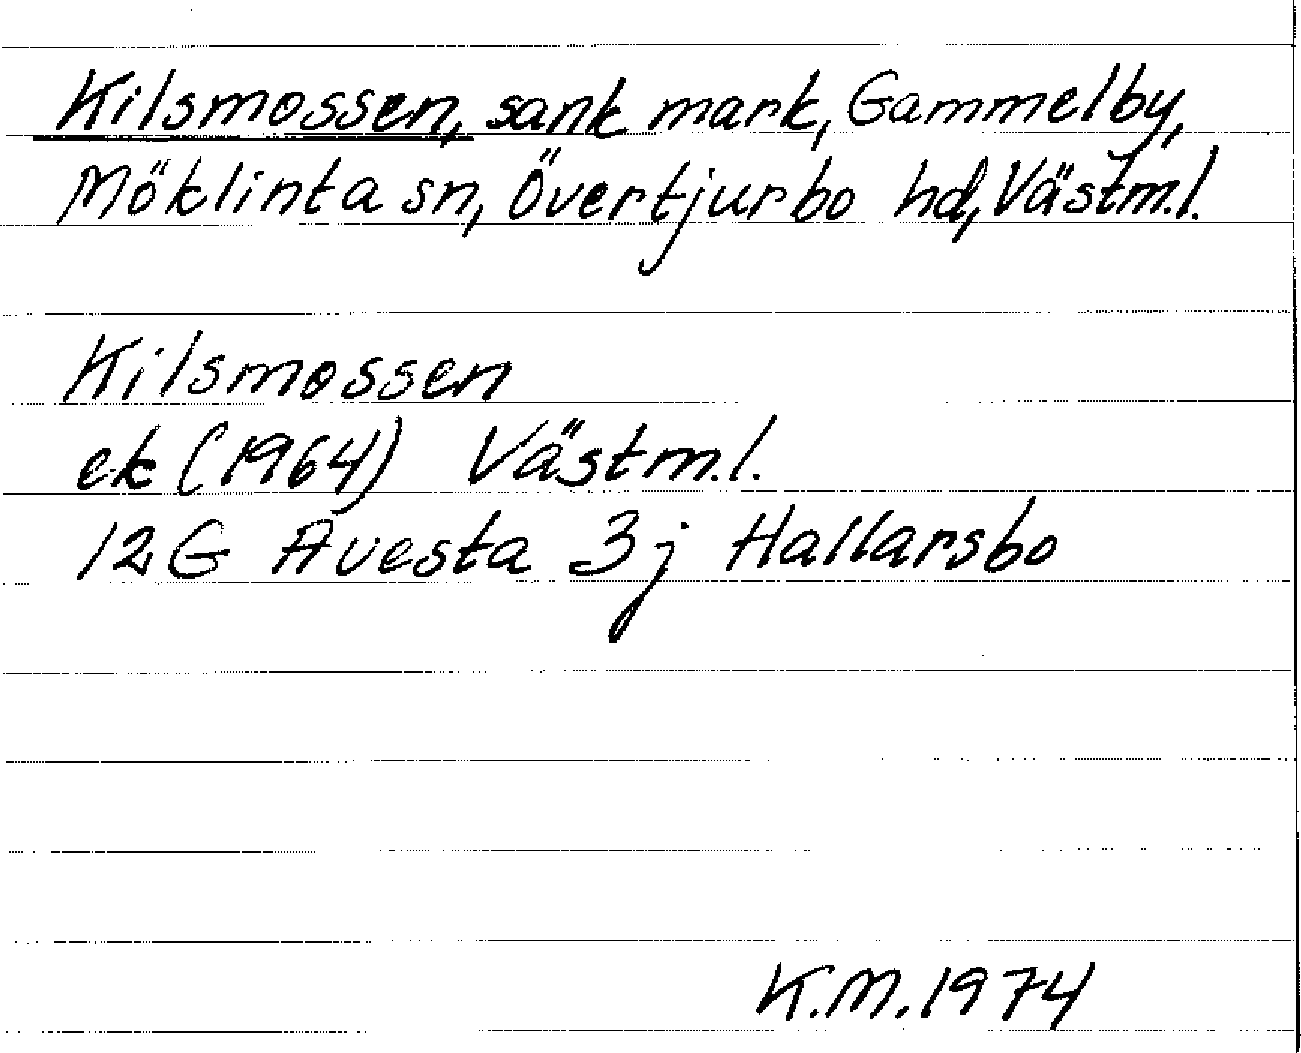 Kilsmossen, sank mark, Gammelby,
Möklinta sn, Övertjurbo hd, Västm.l.
Kilsmossen
ek (1964) Västm.l.
12G Avesta 3j Hallarsbo
K.M. 1974